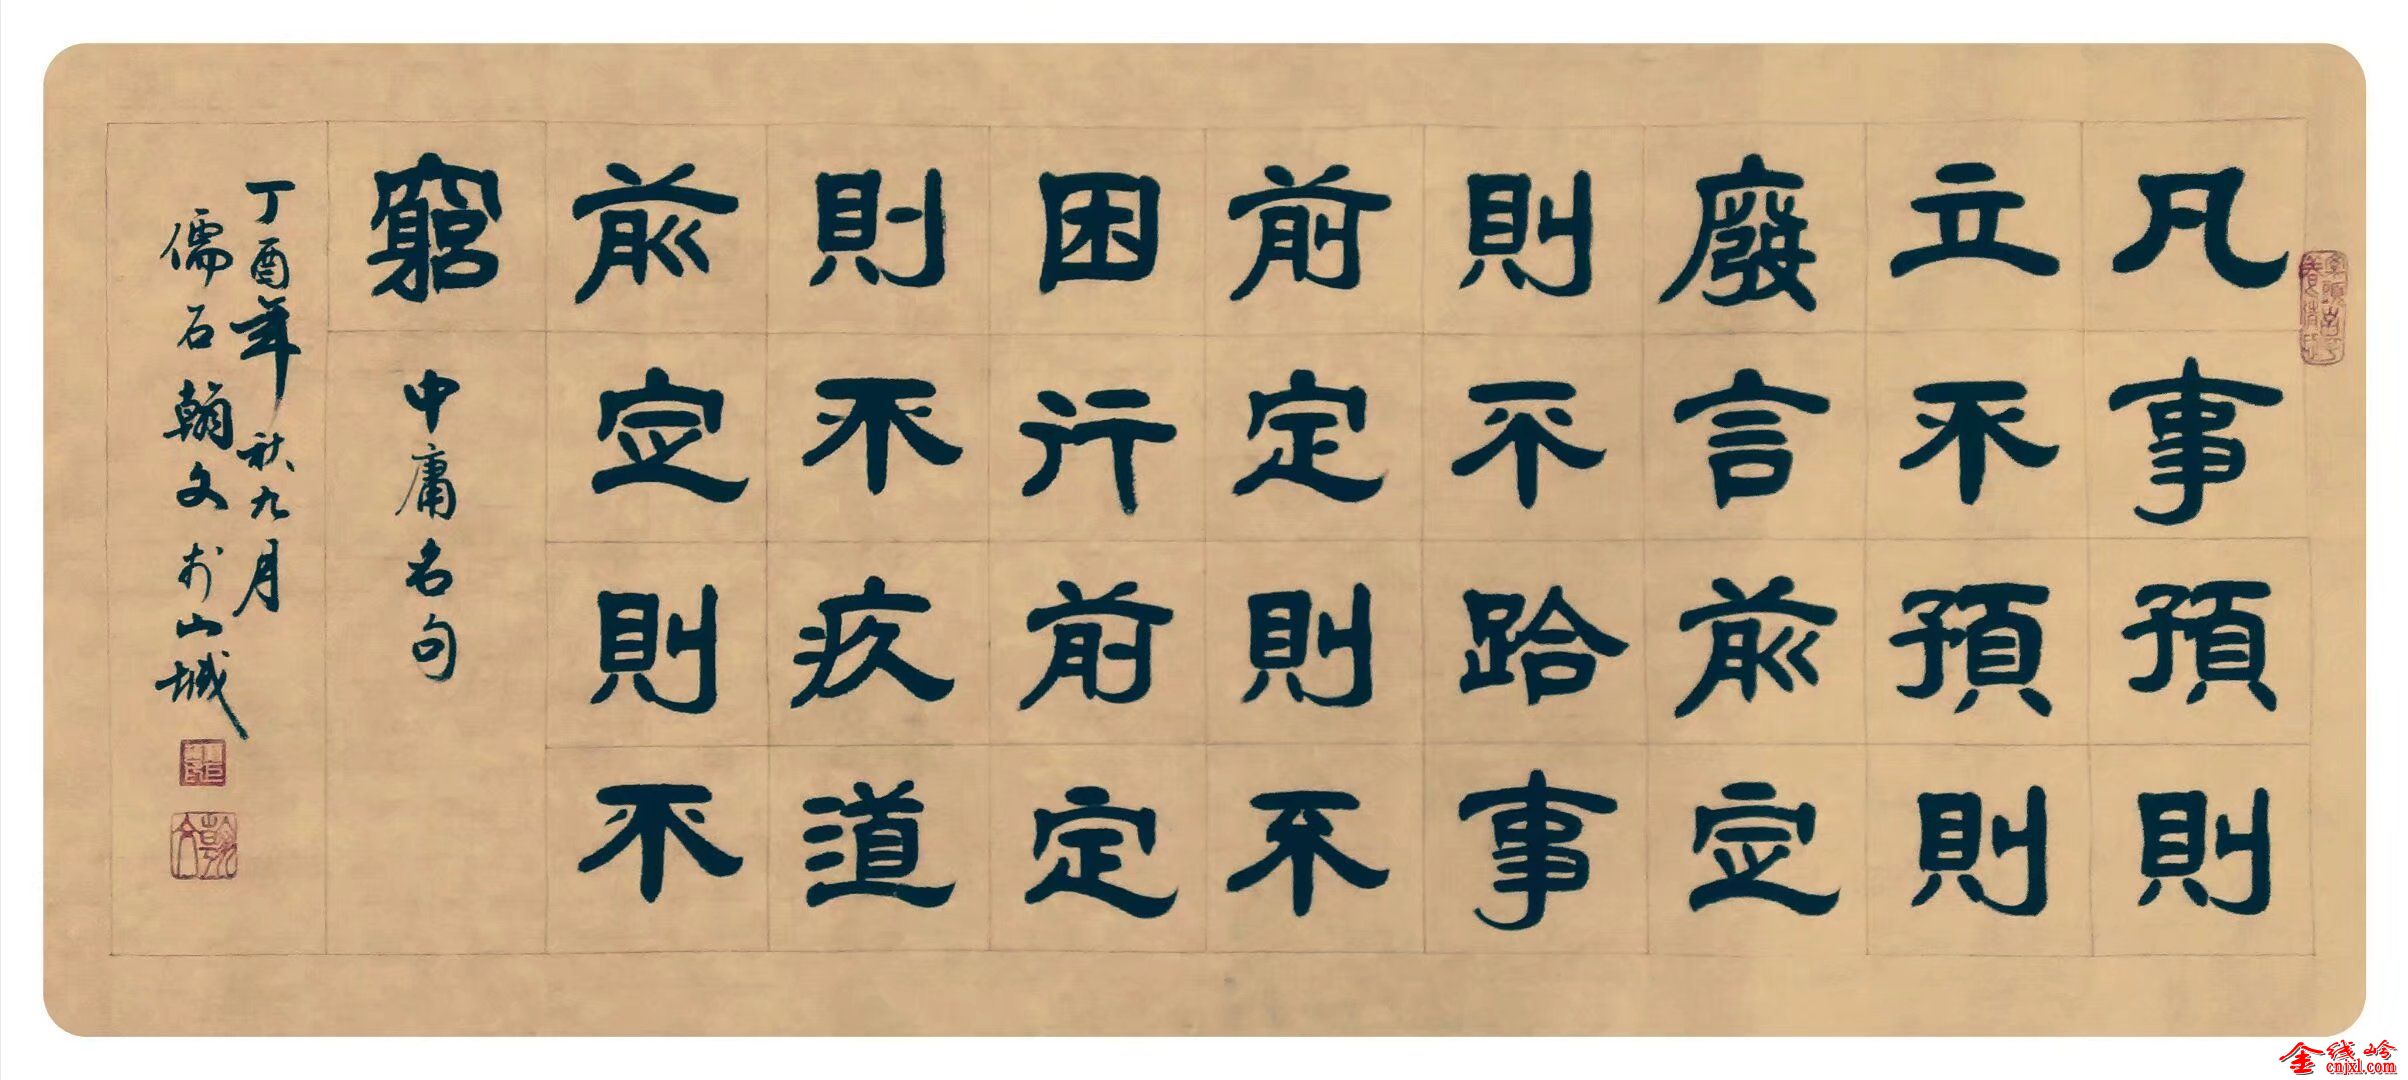 凡事預則
立不預則
廢言前定
則不跲事
前定則不
困行前定
則不疚道
前定則不
窮
中庸名句
丁酉年秋九月
儒石翰文於山城
金线岭
cnjxl.com